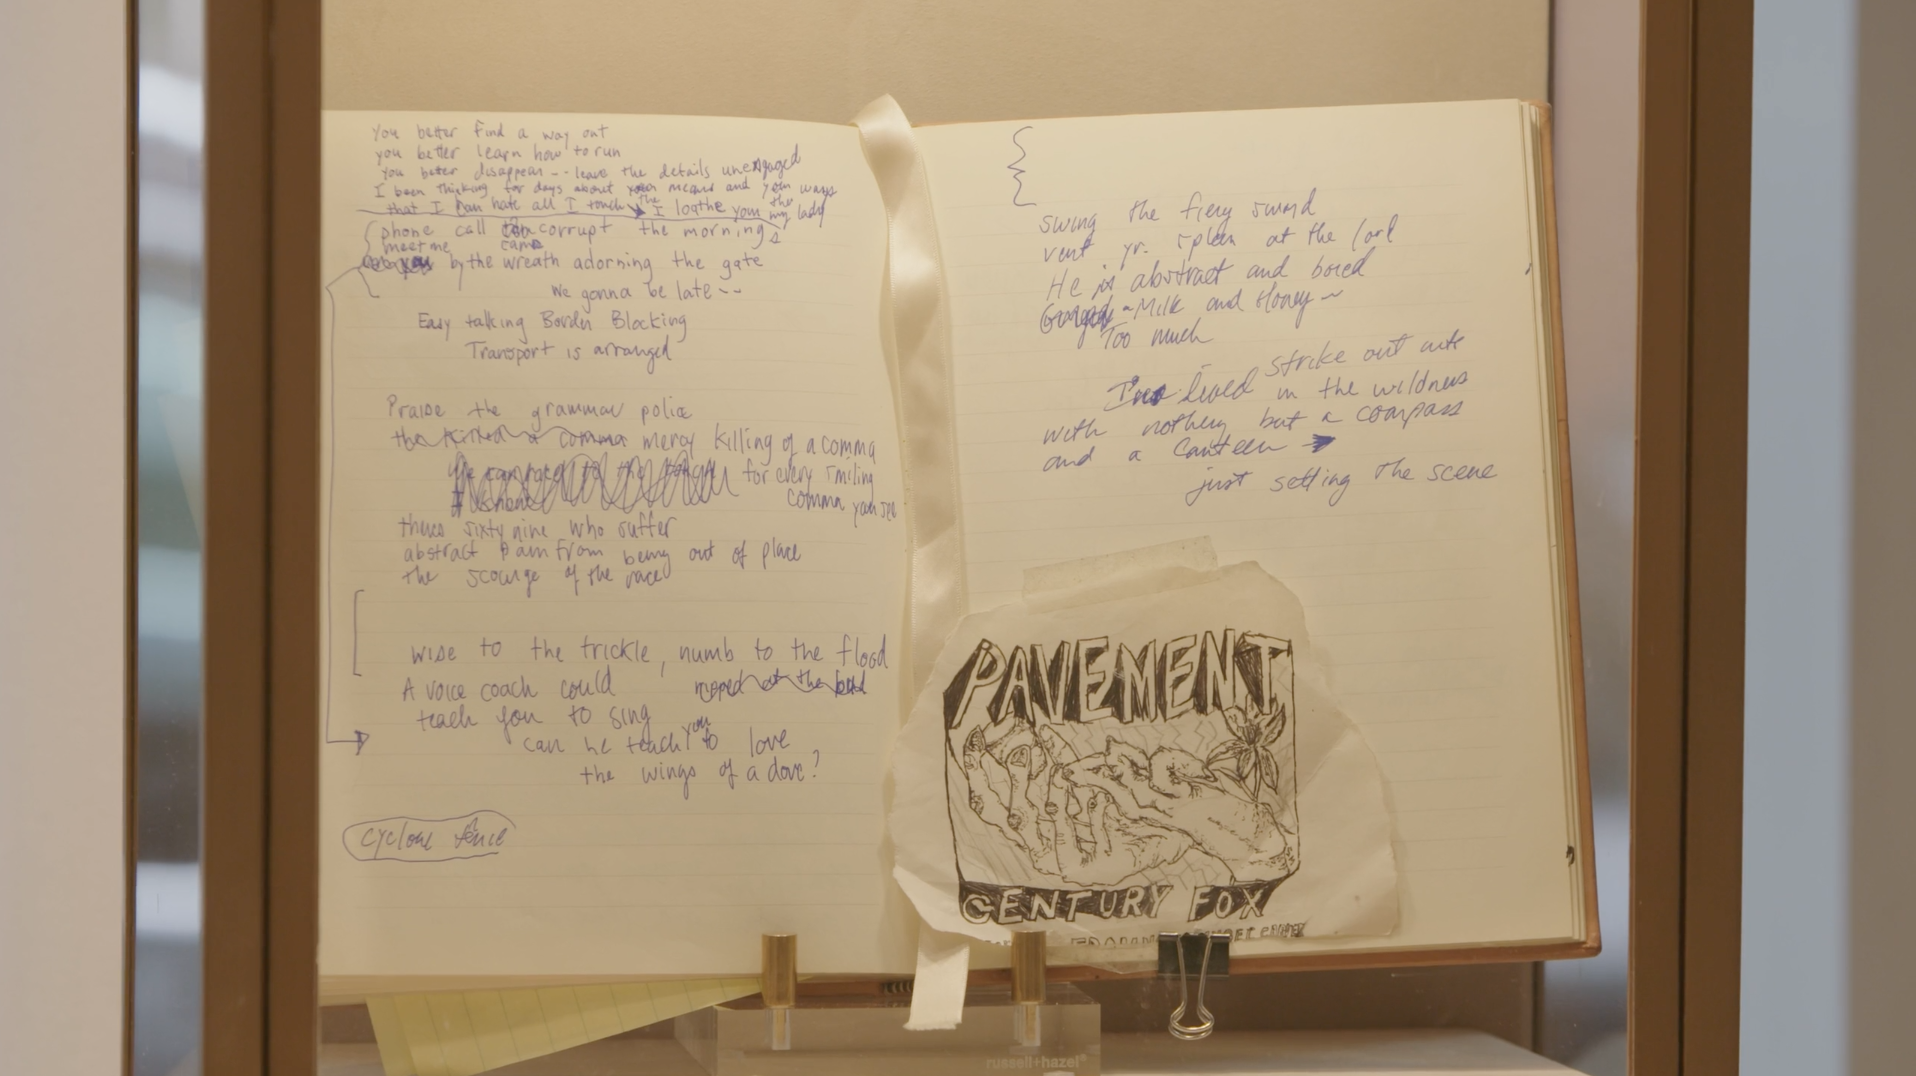 You better find a way out
you better learn how to run
You better disappear -- leave the details unengaged
I been thinking for days about your means and your ways
that I can hate all I touch The I loathe you the my lady
phone call corrupt the morning
meet me came
by the wreath adorning the gate
We gonna be late --
Easy talking Border Blocking
Transport is arranged
Praise the grammar police
the killed a comma mercy killing of a comma
for every smiling
comma you see
theres sixty nine who suffer
abstract pain from being out of place
the scourge of the race
wise to the trickle, numb to the flood
A voice coach could roped at the
teach you to sing
can he teach you to love
the wings of a dove?
cyclone fence
swing the fiery sword
vent yr. spleen at the lord
He is abstract and bored
- Milk and Honey -
Too much
strike out
I've lived in the wildness
with nothing but a compass
and a canteen
just setting the scene
PAVEMENT
CENTURY FOX
russell+hazel